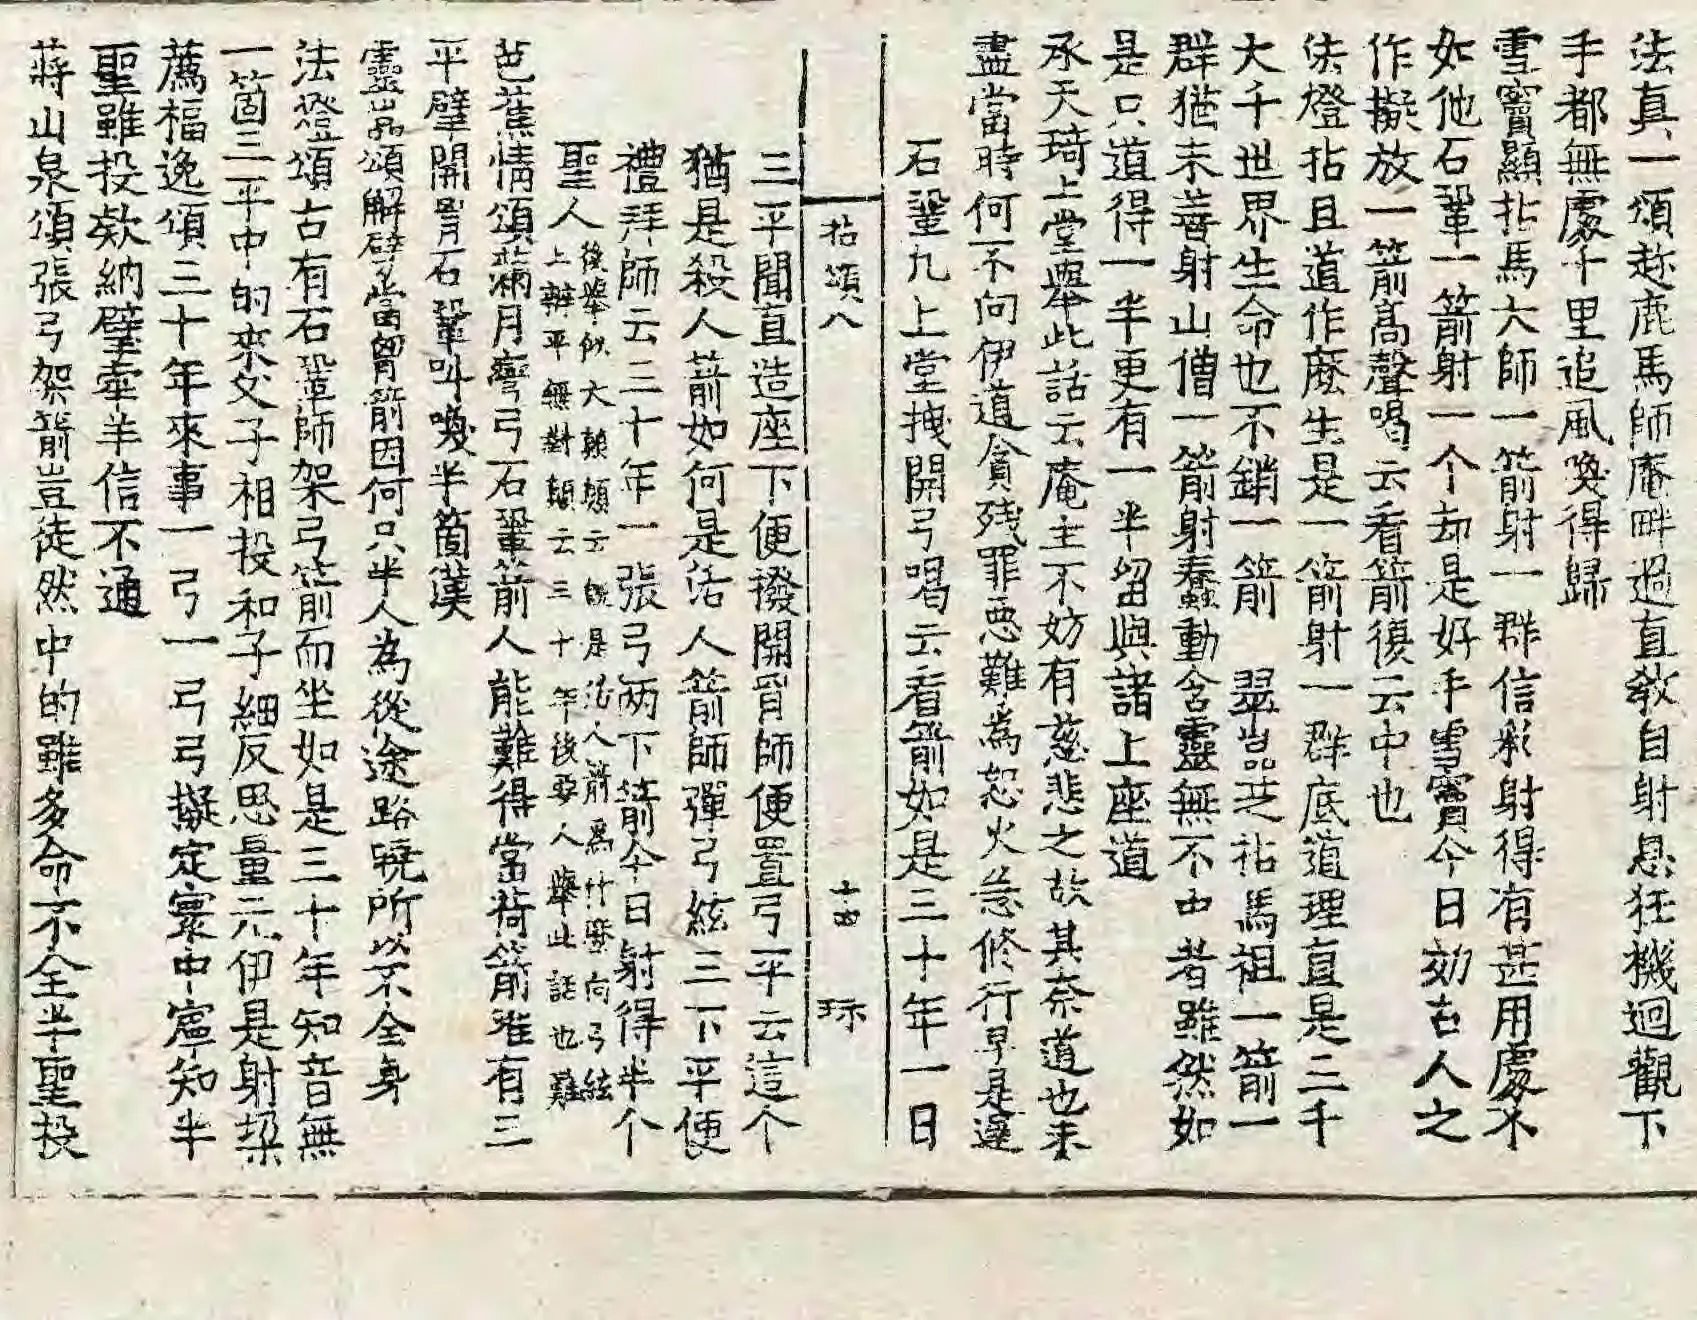 法真一頌趂鹿馬師庵畔過直教自射息狂機迴觀下
手都無處千里追風喚得歸
雪竇顯拈馬大師一箭射一群信彩射得有甚用處不
如他石鞏一箭射一个却是好手雪竇今日効古人之
作擬放一箭高聲喝云看箭復云中也
法燈拈且道作麼生是一箭射一群底道理直是三千
大千世界生命也不銷一箭 翠嵓芝拈馬祖一箭一
群猶未善射山僧一箭射蠢動含靈無不中者雖然如
是只道得一半更有一半留與諸上座道
承天琦上堂舉此話云庵主不妨有慈悲之故其奈道也未
盡當時何不向伊道貪殘罪惡難為恕火急修行早是遲
石鞏凡上堂拽開弓喝云看箭如是三十年一日
拈頌八 十四 珎
三平聞直造座下便撥開胷師便置弓平云這个
猶是殺人箭如何是活人箭師彈弓絃三下平便
禮拜師云三十年一張弓兩下箭今日射得半个
聖人後舉似大顛顛云旣是活人箭爲什麼向弓絃
上辨平無對顛云三十年後要人舉此話也難
芭蕉情頌蒲月彎弓石鞏箭人能難得當荷箭雖有三
平擘開胷石鞏叫喚半箇漢
靈嵓頌解擘當胷箭因何只半人為從途路曉所以不全身
法燈頌古有石鞏師架弓箭而坐如是三十年知音無
一箇三平中的來父子相投和子細反思量元伊是射垜
薦福逸頌三十年來事一弓一弓弓擬定寰中寧知半
聖雖投欵納璧牽羊信不通
蔣山泉頌張弓架箭豈徒然中的雖多命不全半聖投